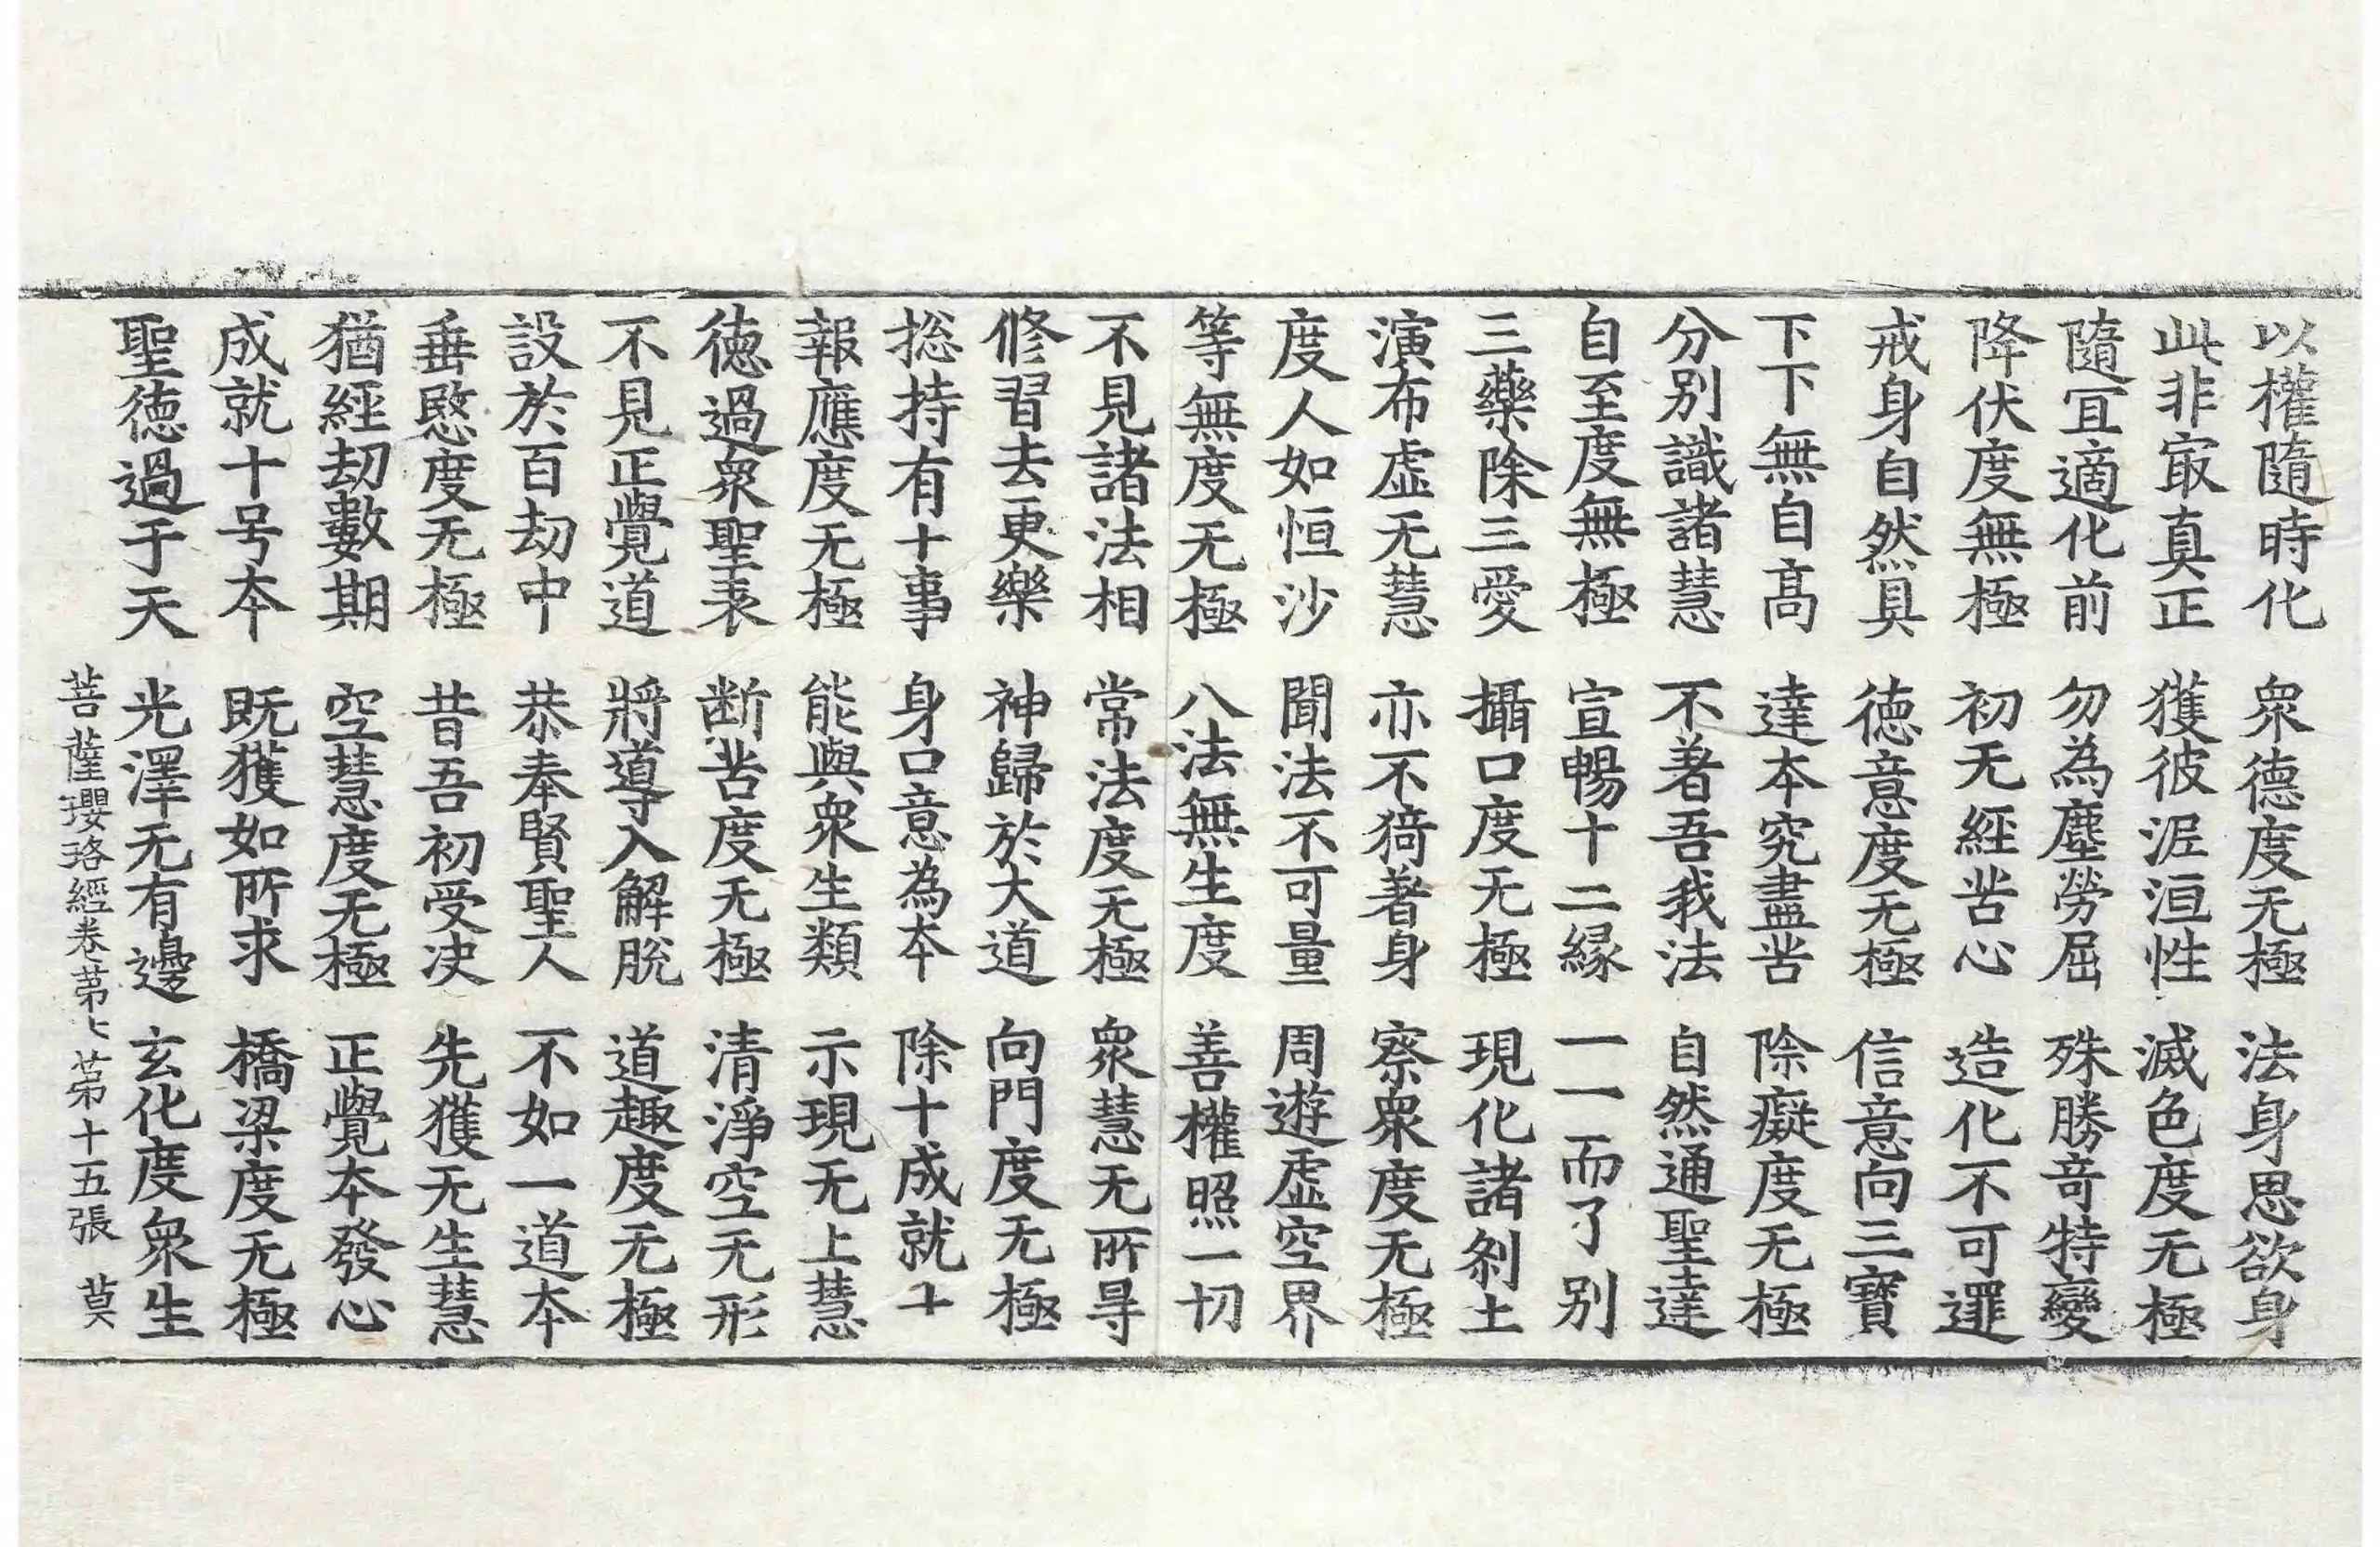 以權隨時化 衆德度无極 法身思欲身
此非㝡真正 獲彼泥洹性 滅色度无極
隨冝適化前 勿為塵勞屈 殊勝竒特變
降伏度無極 初无經苦心 造化不可遝
戒身自然具 徳意度无極 信意向三寶
下下無自高 達夲究盡苦 除癡度无極
分別識諸慧 不著吾我法 自然通聖達
自至度無極 宣暢十二縁 一一而了別
三藥除三愛 攝口度无極 現化諸刹土
演布虚无慧 亦不猗著身 察衆度无極
度人如恒沙 聞法不可量 周遊虛空界
等無度无極 八法無生度 善權照一切
不見諸法相 常法度无極 衆慧无所㝵
修習去更樂 神歸於大道 向門度无極
捴持有十事 身口意為夲 除十成就十
報應度无極 能與衆生類 示現无上慧
徳過衆聖表 断苦度无極 清淨空无形
不見正覺道 將導入解脫 道趣度无極
設於百劫中 恭奉賢聖人 不如一道夲
垂愍度无極 昔吾初受决 先獲无生慧
猶經劫數期 空慧度无極 正覺夲發心
成就十号夲 既獲如所求 橋梁度无極
聖徳過于天 光澤无有邊 玄化度衆生
菩薩瓔珞經卷苐七 苐十五張 莫